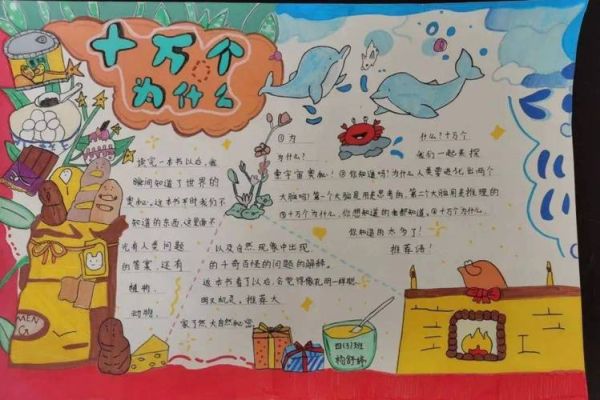 十万个
为什么
读完一本书以后,我
瞬间知道了世界的
奥秘。这本书平时我们不
知道的东西,这里面不
光有人类问题
的答案,还有
植物、
动物、
以及自然现象中出现
的千奇百怪的问题的解释。
这本书看了以后,会觉得像孔明一样聪
明又机灵,推荐大
家了然大自然知识
①为
为什么?
什么!十万个
我们一起来探
索宇宙奥秘!②你知道吗?为什么人类要进化出两个
大脑吗?第一个大脑是用来思考的,第二个大脑用是推理的
③十万个为什么,你想知道的它都知道。④十万个为什么,
你知道的太多了!
推荐语!
MEN
CA
四(3)班